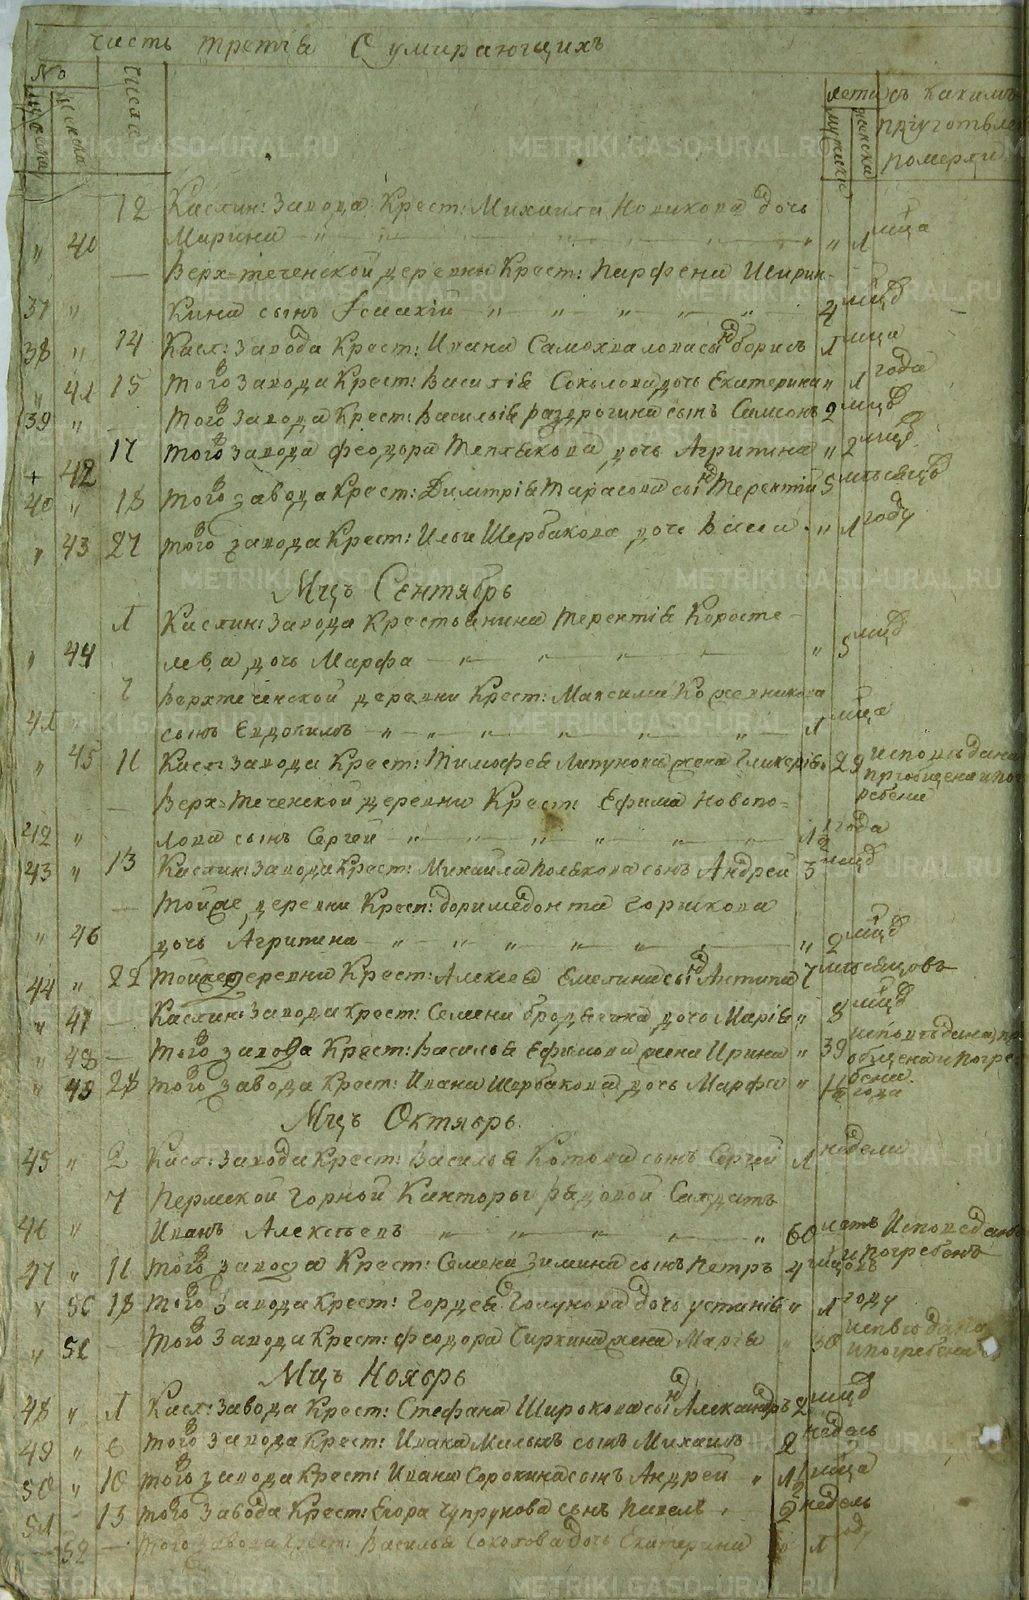 Часть третія О умирающихъ
№ Числа Лета съ какимъ
мужеска женска пріуготвле
помѣрли
12 Каслин: завода Крест: Михаила Новикова дочь
" 40 Марина " " 1 мца
— Верх-теченской деревни Крест: Парфена Ширин-
37 " кина сынъ Ісаакій " " " " " 4 мцд
38 " 14 Касл: завода Крест: Ивана Самохвалова сынъ борисъ 1 мца
" 41 15 того завода Крест: Василія Соколова дочь Екатерина " 1 года
39 " — того завода Крест: Василья раздрогина сынъ Самсонъ 2 мцъ
+ 42 17 того завода феодора дочь Агрипина " 2 мцъ
40 " 18 того завода Крест: Димитрія Тарасова сынъ Терентій 5 мѣсяцъ
" 43 27 того завода Крест: Ильи Щербакова дочь Васса " 1 году
Мцъ Сентябрь
1 Каслин: завода Крестьянина Терентія Коросте-
" 44 лева дочь Марфа " " " " 5 мцд
7 Верхтеченской деревни Крест: Максима Кожевникова
41 " сынъ Евдокимъ " " " " " 1 мца
" 45 11 Касл: завода Крест: Тимофея Ляпунова жена Гликерія " 29 исповѣдана
пріобщена и пог
ребена
— Верх-Теченской деревни Крест: Ефима Новопо-
42 " лова сынъ Сергей " " " " " 1½ года
43 " 13 Каслин: завода Крест: Михаила Полякова сынъ Андрей 3 мцд
— Тойже деревни Крест: доримедонта горшкова
" 46 дочь Агрипина " " " " " " 2 мцд
44 " 22 Тойже деревни Крест: Алексея Емелина сынъ Антипа 7 мѣсяцовъ
" 47 — Каслин: завода крест: Семена дочь Марія " 8 мцд
" 48 — того завода Крест: Василья Ефимова жена Ирина " 39 исповѣдана пр
общена и погре
бена
" 49 28 того завода Крест: Ивана Щербакова дочь Марфа " 1½ года
Мцъ Октябрь.
45 " 2 Касл: завода Крест: Василья Котова сынъ Сергей 1 недели
7 Пермской горной Канторы рядовой Салдатъ
46 " Иванъ Алексѣевъ " " " " 60 летъ Исповедан
и погребенъ
47 " 11 того завода Крест: Семена Зимина сынъ Петръ 4 мцовъ
" 50 18 того завода Крест: Гордея Голунова дочь устинія " 1 году
" 51 — того завода Крест: феодора Сиркина жена Марія " 50 исповѣдана
и погребена
Мцъ Ноябрь
48 " 1 Касл: завода Крест: Стефана Широкова сынъ Александръ 2 мцд
49 " 6 того завода Крест: сынъ Михаилъ 2 недель
50 " 10 того завода Крест: Ивана Сорокина сынъ Андрей " 1½ мца
51 " 13 того завода Крест: Егора Чупрунова сынъ Павелъ 2 недель
52 — того завода Крест: Василья Соколова дочь Екатерина " 1 году
METRIKI.GASO-URAL.RU